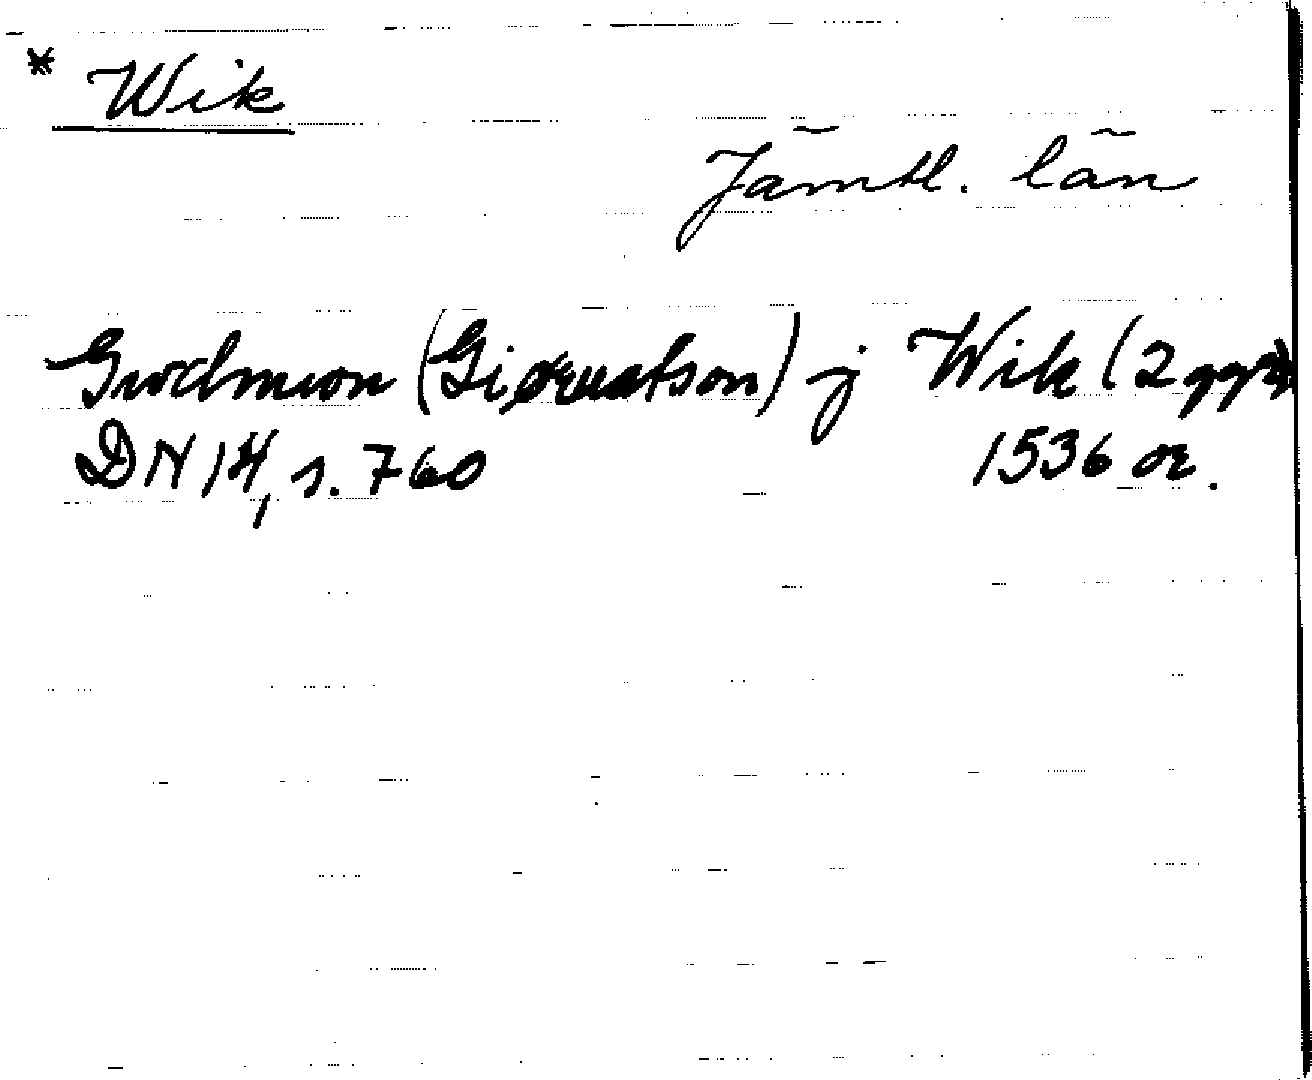 * Wik
Jämtl. län
Gudmwon (Giøruatson) j Wik (2 ggr)
DN 14, s. 760 1536 or.